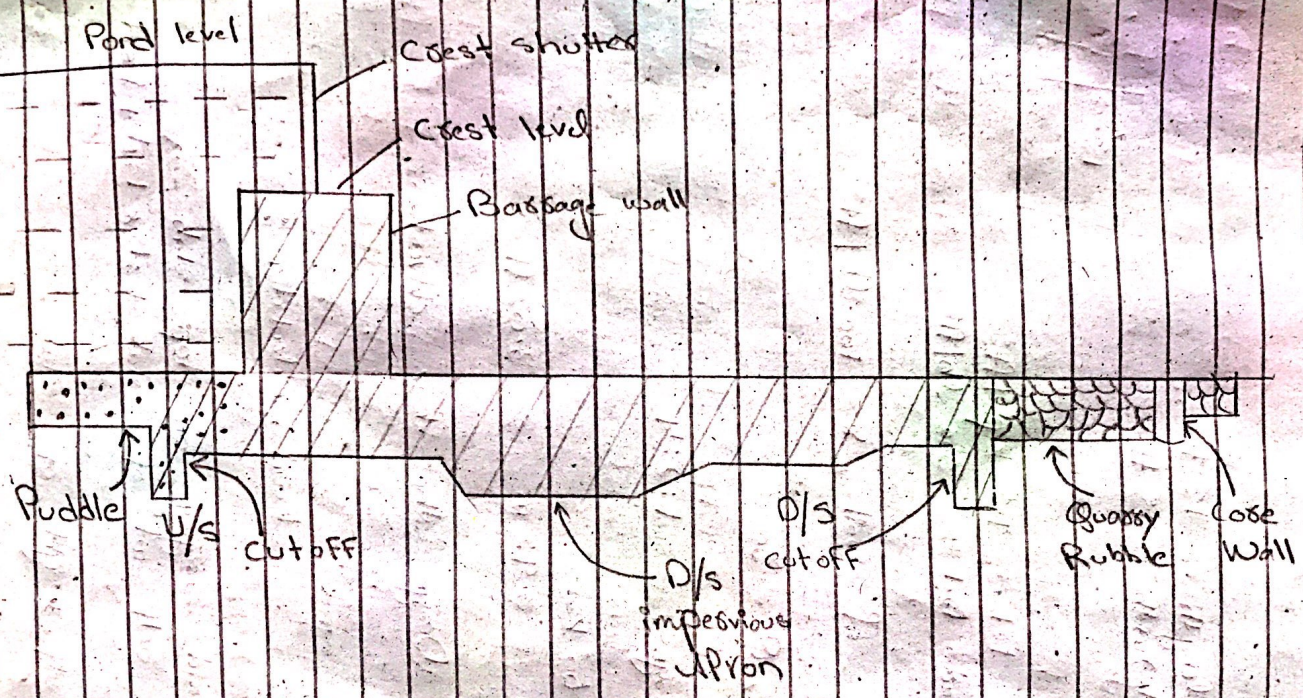 Pond level
Crest shutter
Crest level
Barrage wall
Puddle
U/S
cutoff
D/S
impervious
Apron
D/S
cutoff
Quarry
Rubble
Core
Wall